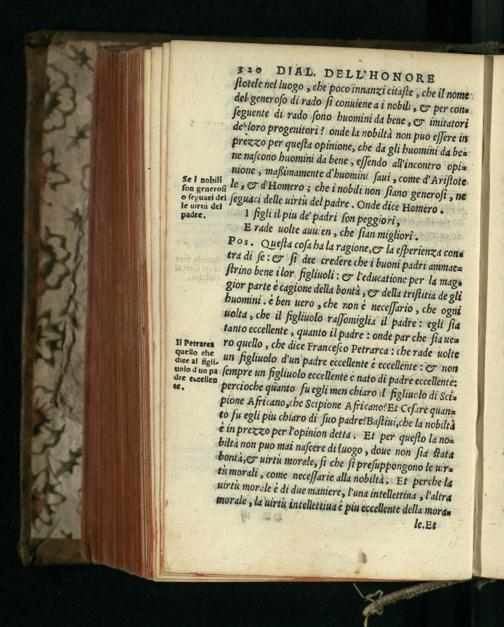 320 DIAL. DELL'HONORE
ſtotele nel luogo, che poco innanzi citaſte, che il nome
del generoſo di rado ſi conuiene a i nobili, & per con-
ſeguente di rado ſono huomini da bene, & imitatori
de' loro progenitori? onde la nobiltà non puo eſſere in
prezzo per queſta opinione, che da gli huomini da be-
ne naſcono huomini da bene, eſſendo all'incontro opi-
nione, maßimamente d'huomini ſaui, come d'Ariſtote
le, & d'Homero; che i nobili non ſiano generoſi, ne
ſeguaci delle uirtù del padre. Onde dice Homero.
Se i nobili
ſon generoſi
o ſeguaci del
le uirtù del
padre.
I figli il piu de' padri ſon peggiori,
E rade uolte auuien, che ſian migliori.
Pos. Queſta coſa ha la ragione, & la eſperienza con-
tra di ſe: & ſi dee credere che i buoni padri ammae-
ſtrino bene i lor figliuoli: & l'educatione per la mag-
gior parte è cagione della bontà, & della triſtitia de gli
huomini. è ben uero, che non è neceſſario, che ogni
uolta, che il figliuolo raſſomiglia il padre: egli ſia
tanto eccellente, quanto il padre: onde par che ſia ue-
ro quello, che dice Franceſco Petrarca: che rade uolte
un figliuolo d'un padre eccellente è eccellente: & non
ſempre un figliuolo eccellente è nato di padre eccellente:
Il Petrarca
quello che
dice al figli-
uolo d'un pa
dre eccellen
te.
percioche quanto fu egli men chiaro il figliuolo di Sci-
pione Africano, che Scipione Africano? Et Ceſare quan-
to fu egli piu chiaro di ſuo padre? Baſtiui, che la nobiltà
è in prezzo per l'opinion detta. Et per queſto la no-
biltà non puo mai naſcere di luogo, doue non ſia ſtata
bontà, & uirtù morale, ſi che ſi preſuppongono le uir-
tù morali, come neceſſarie alla nobiltà. Et perche la
uirtù morale è di due maniere, l'una intellettiua, l'altra
morale, la uirtù intellettiua è piu eccellente della mora-
le. Et